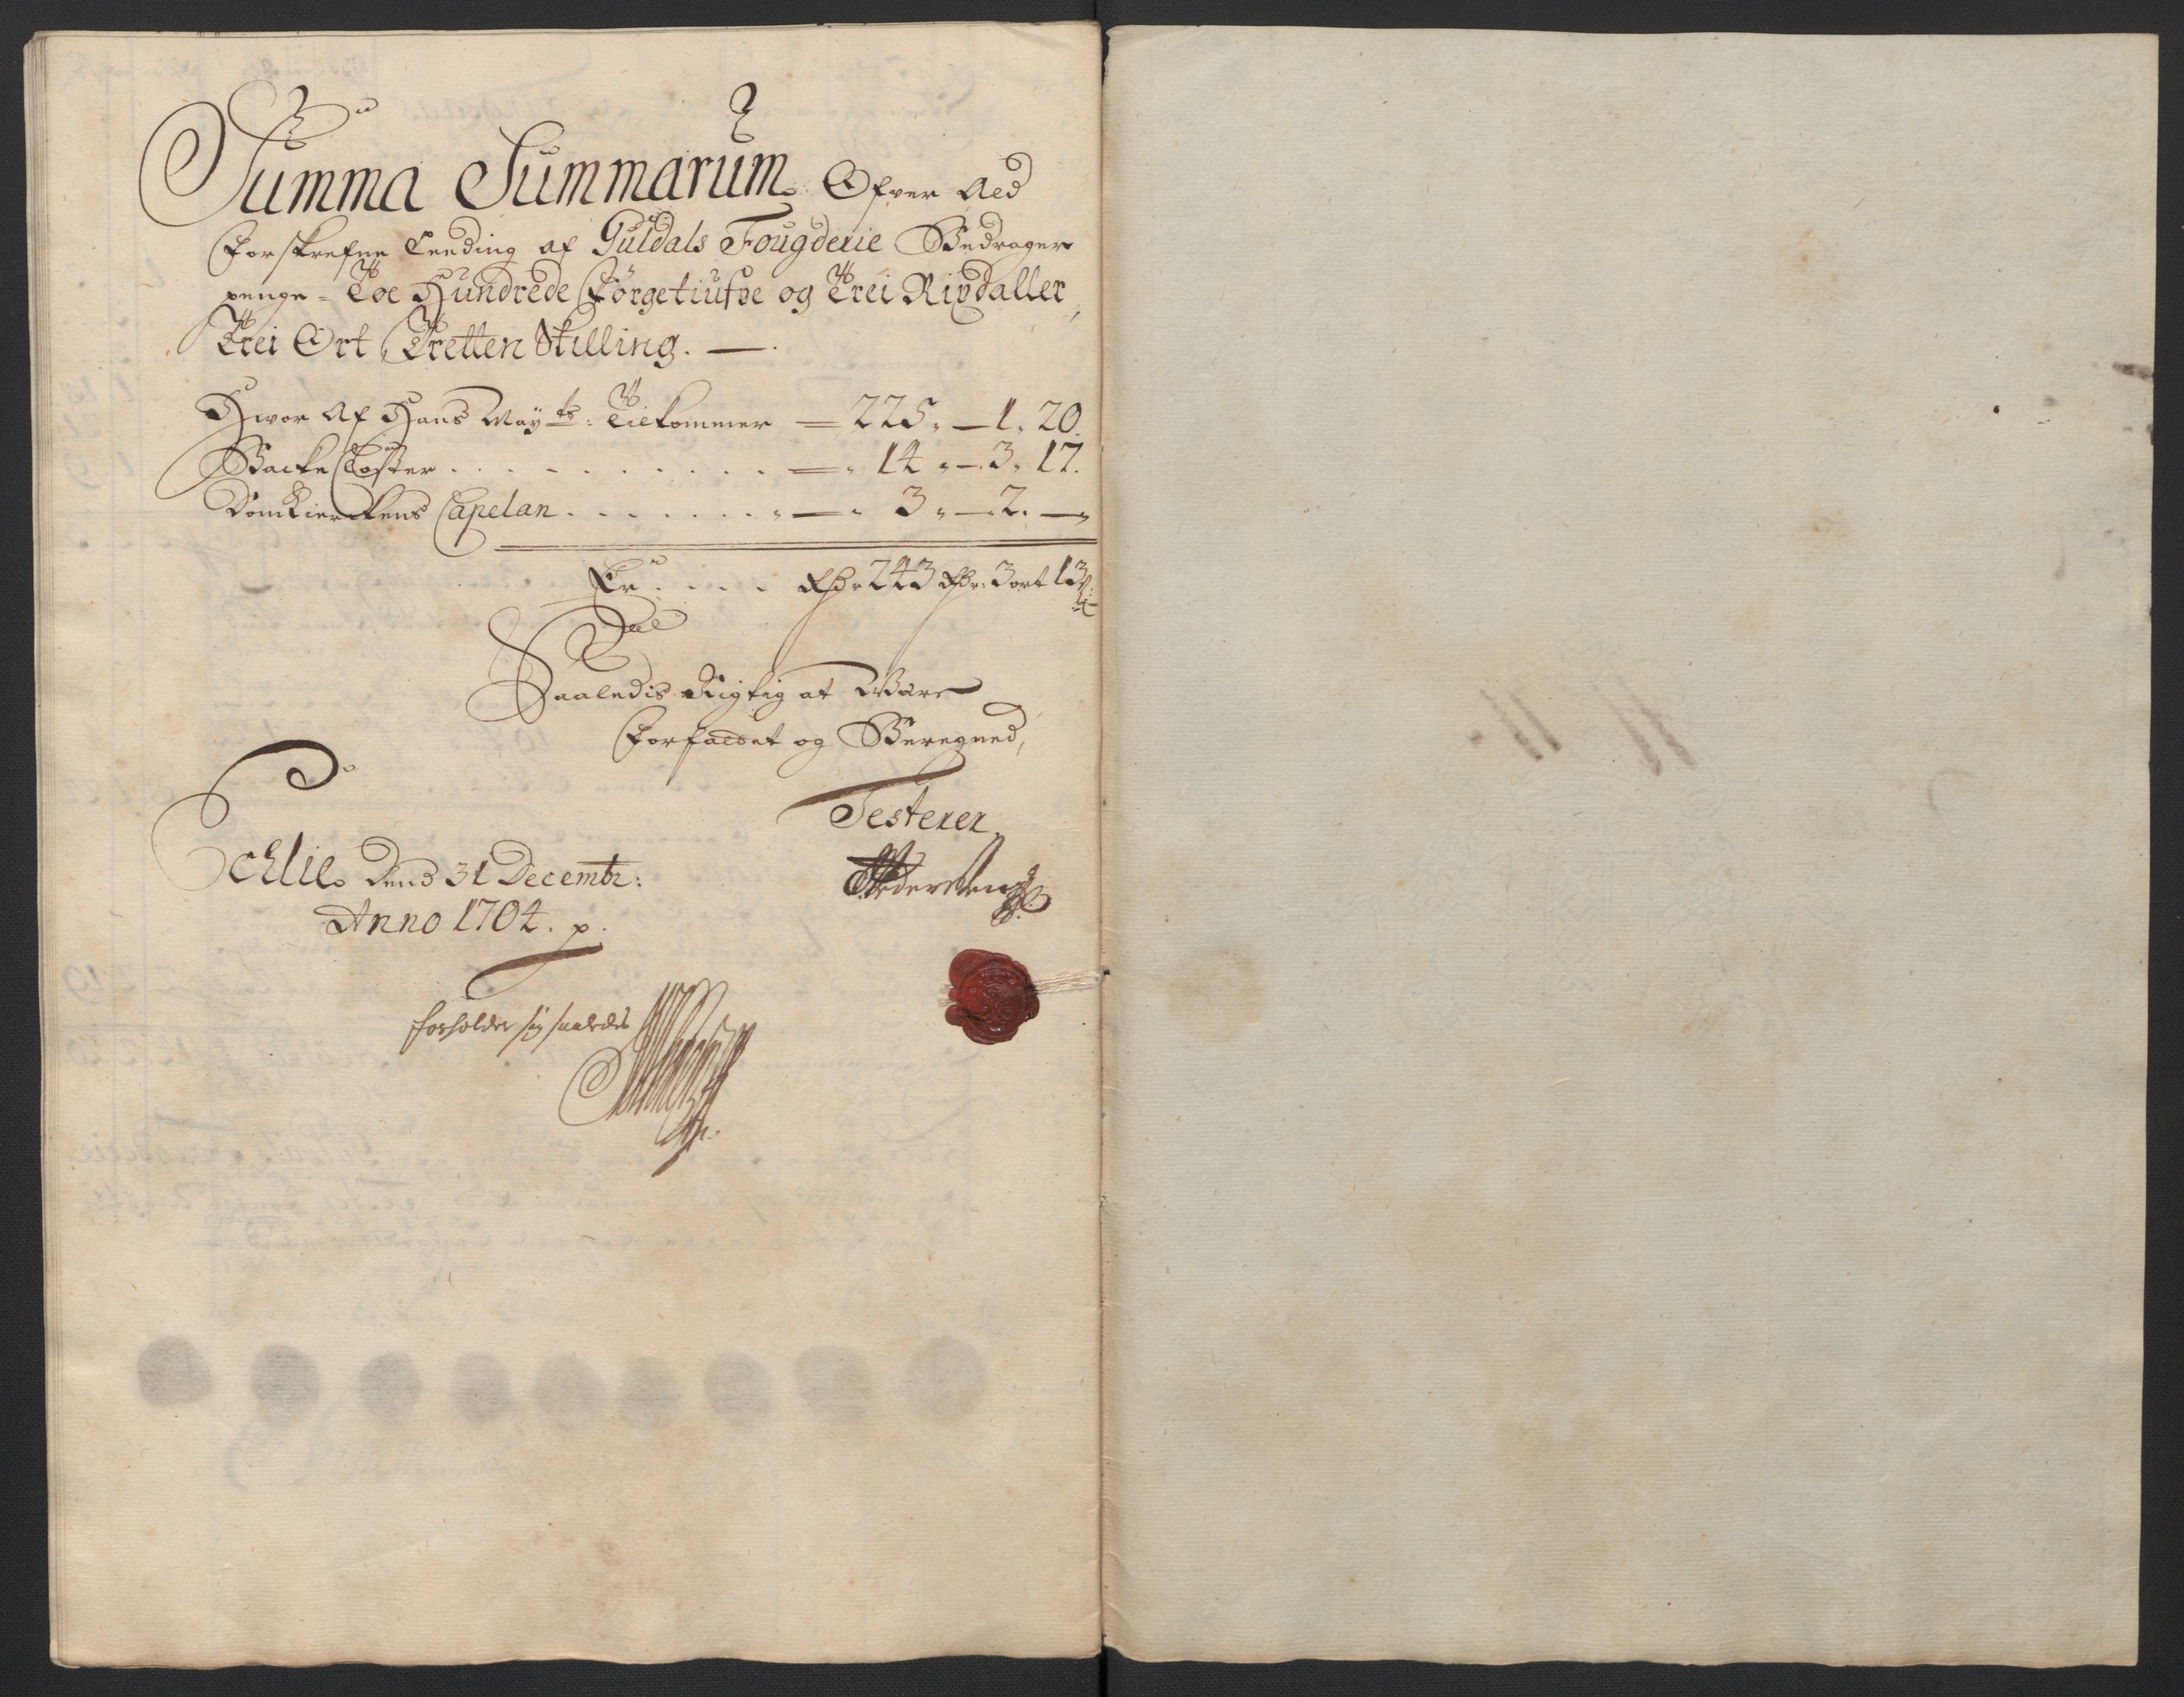 Summa Summarum Ofver Ald
forskrefne Leeding af Guldals Fougderie Bedrager
penge = Toe Hundrede förgetiufve og Trei Rixdaller,
Trei Ort, Tretten Skilling. —.
Hvor Af Hans Mayts: Tilkommer — 225. — 1. 20.
Backe Closter . . . . . . . . . . — 14. — 3. 17.
DomKierckens Capelan . . . . . . . — 3. — 2. —
Er . . . . Rdr 243 Rdr. 3 ort 13 s:
Saaledis Rigtig at Være
forfaldet og Beregned,
Testerer
Dend 31 Decembr:
Anno 1704. p.
forholder sig saaledes